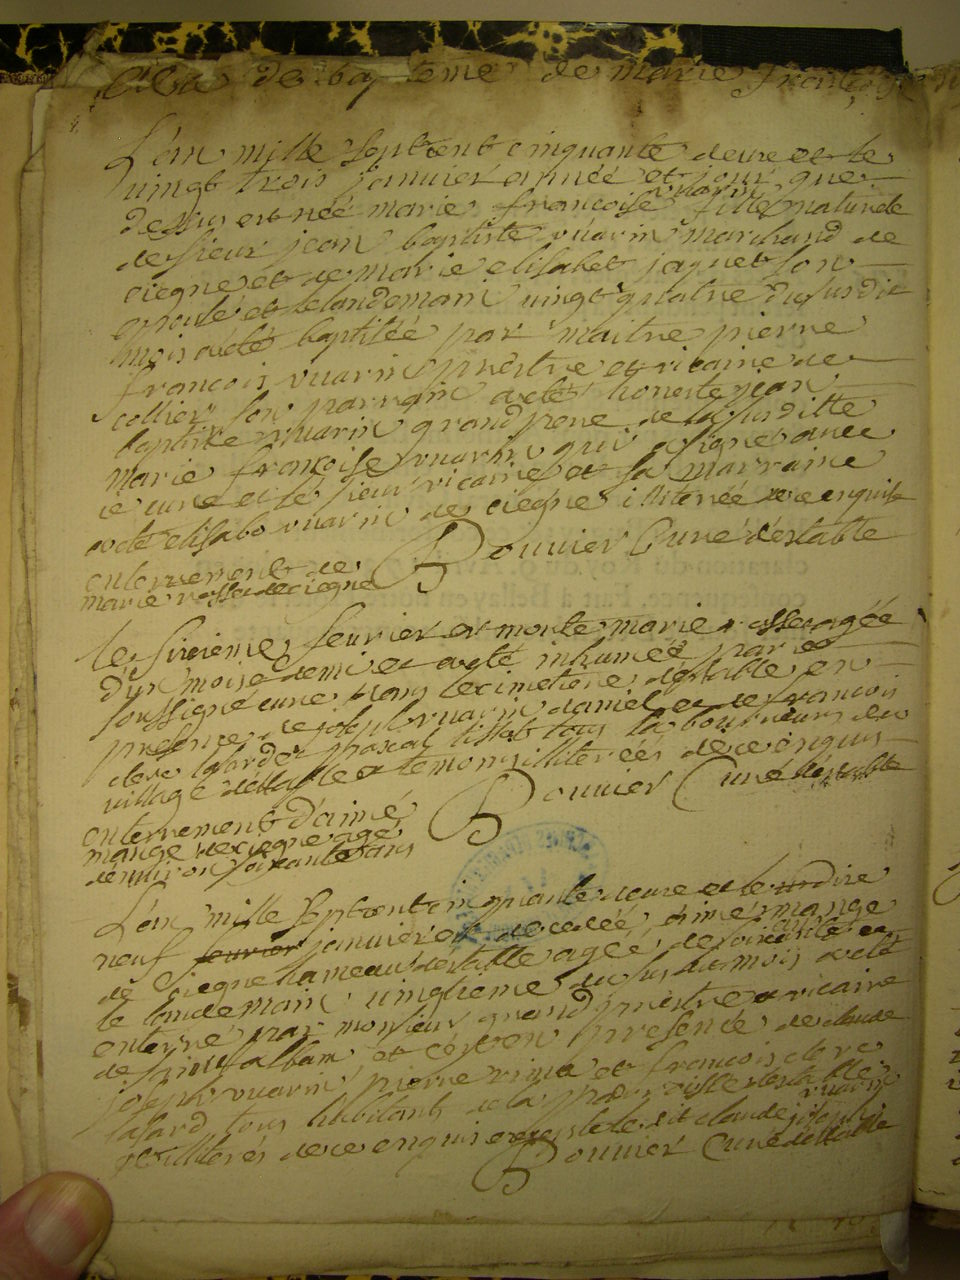 de bapteme de marie françoise
L'an mille septcent cinquante deux et le
vingt trois janvier année et jour que
dessus est née marie françoise vuarin fille naturele
de sieur jean baptiste vuarin marchand de
ciegne et de marie elisabet jaquet son
epouse et le landemain vingt quatre du susdit
mois a été baptisée par maitre pierre
françois vuarin prestre et vicaire de
collier son parrain a eté honeste jean
baptiste vuarin grand pere de la susditte
marie françoise vuarin qui a signé avec
le curé et le sieur vicaire et sa marraine
a eté elisabe vuarin de ciegne illiterée de ce enquise
Bouvier Curé d'estable
enterrement de
marie rosse de ciegne
le sixieme fevrier est morte marie rosse agée
d'un mois demi et a eté inhumée par
soussigné curé dans le cimetiere d'estable en
presence de joseph vuarin daniel et de francois
clerc lafard pascal tissot tous laboureurs du
village d'estable temoins illiterées de ce enquis
Bouvier Curé d'estable
enterrement d'aimé
mange de ciegne agé
d'environ soixante ans
L'an mille septcent cinquante deux et le dix
neuf fevrier janvier est decedé aimé mange
de ciegne hameau d'estable agée de soixante ans
le landemain vingtieme du susdit mois a eté
enterré par monsieur grand prestre et vicaire
de saint alban et ce en presence de claude
joseph vuarin pierre et francois clerc
lafard tous habitants de la paroisse d'estable
illiterés de ce enquis excepté le dit claude joseph vuarin
Bouvier Curé d'estable